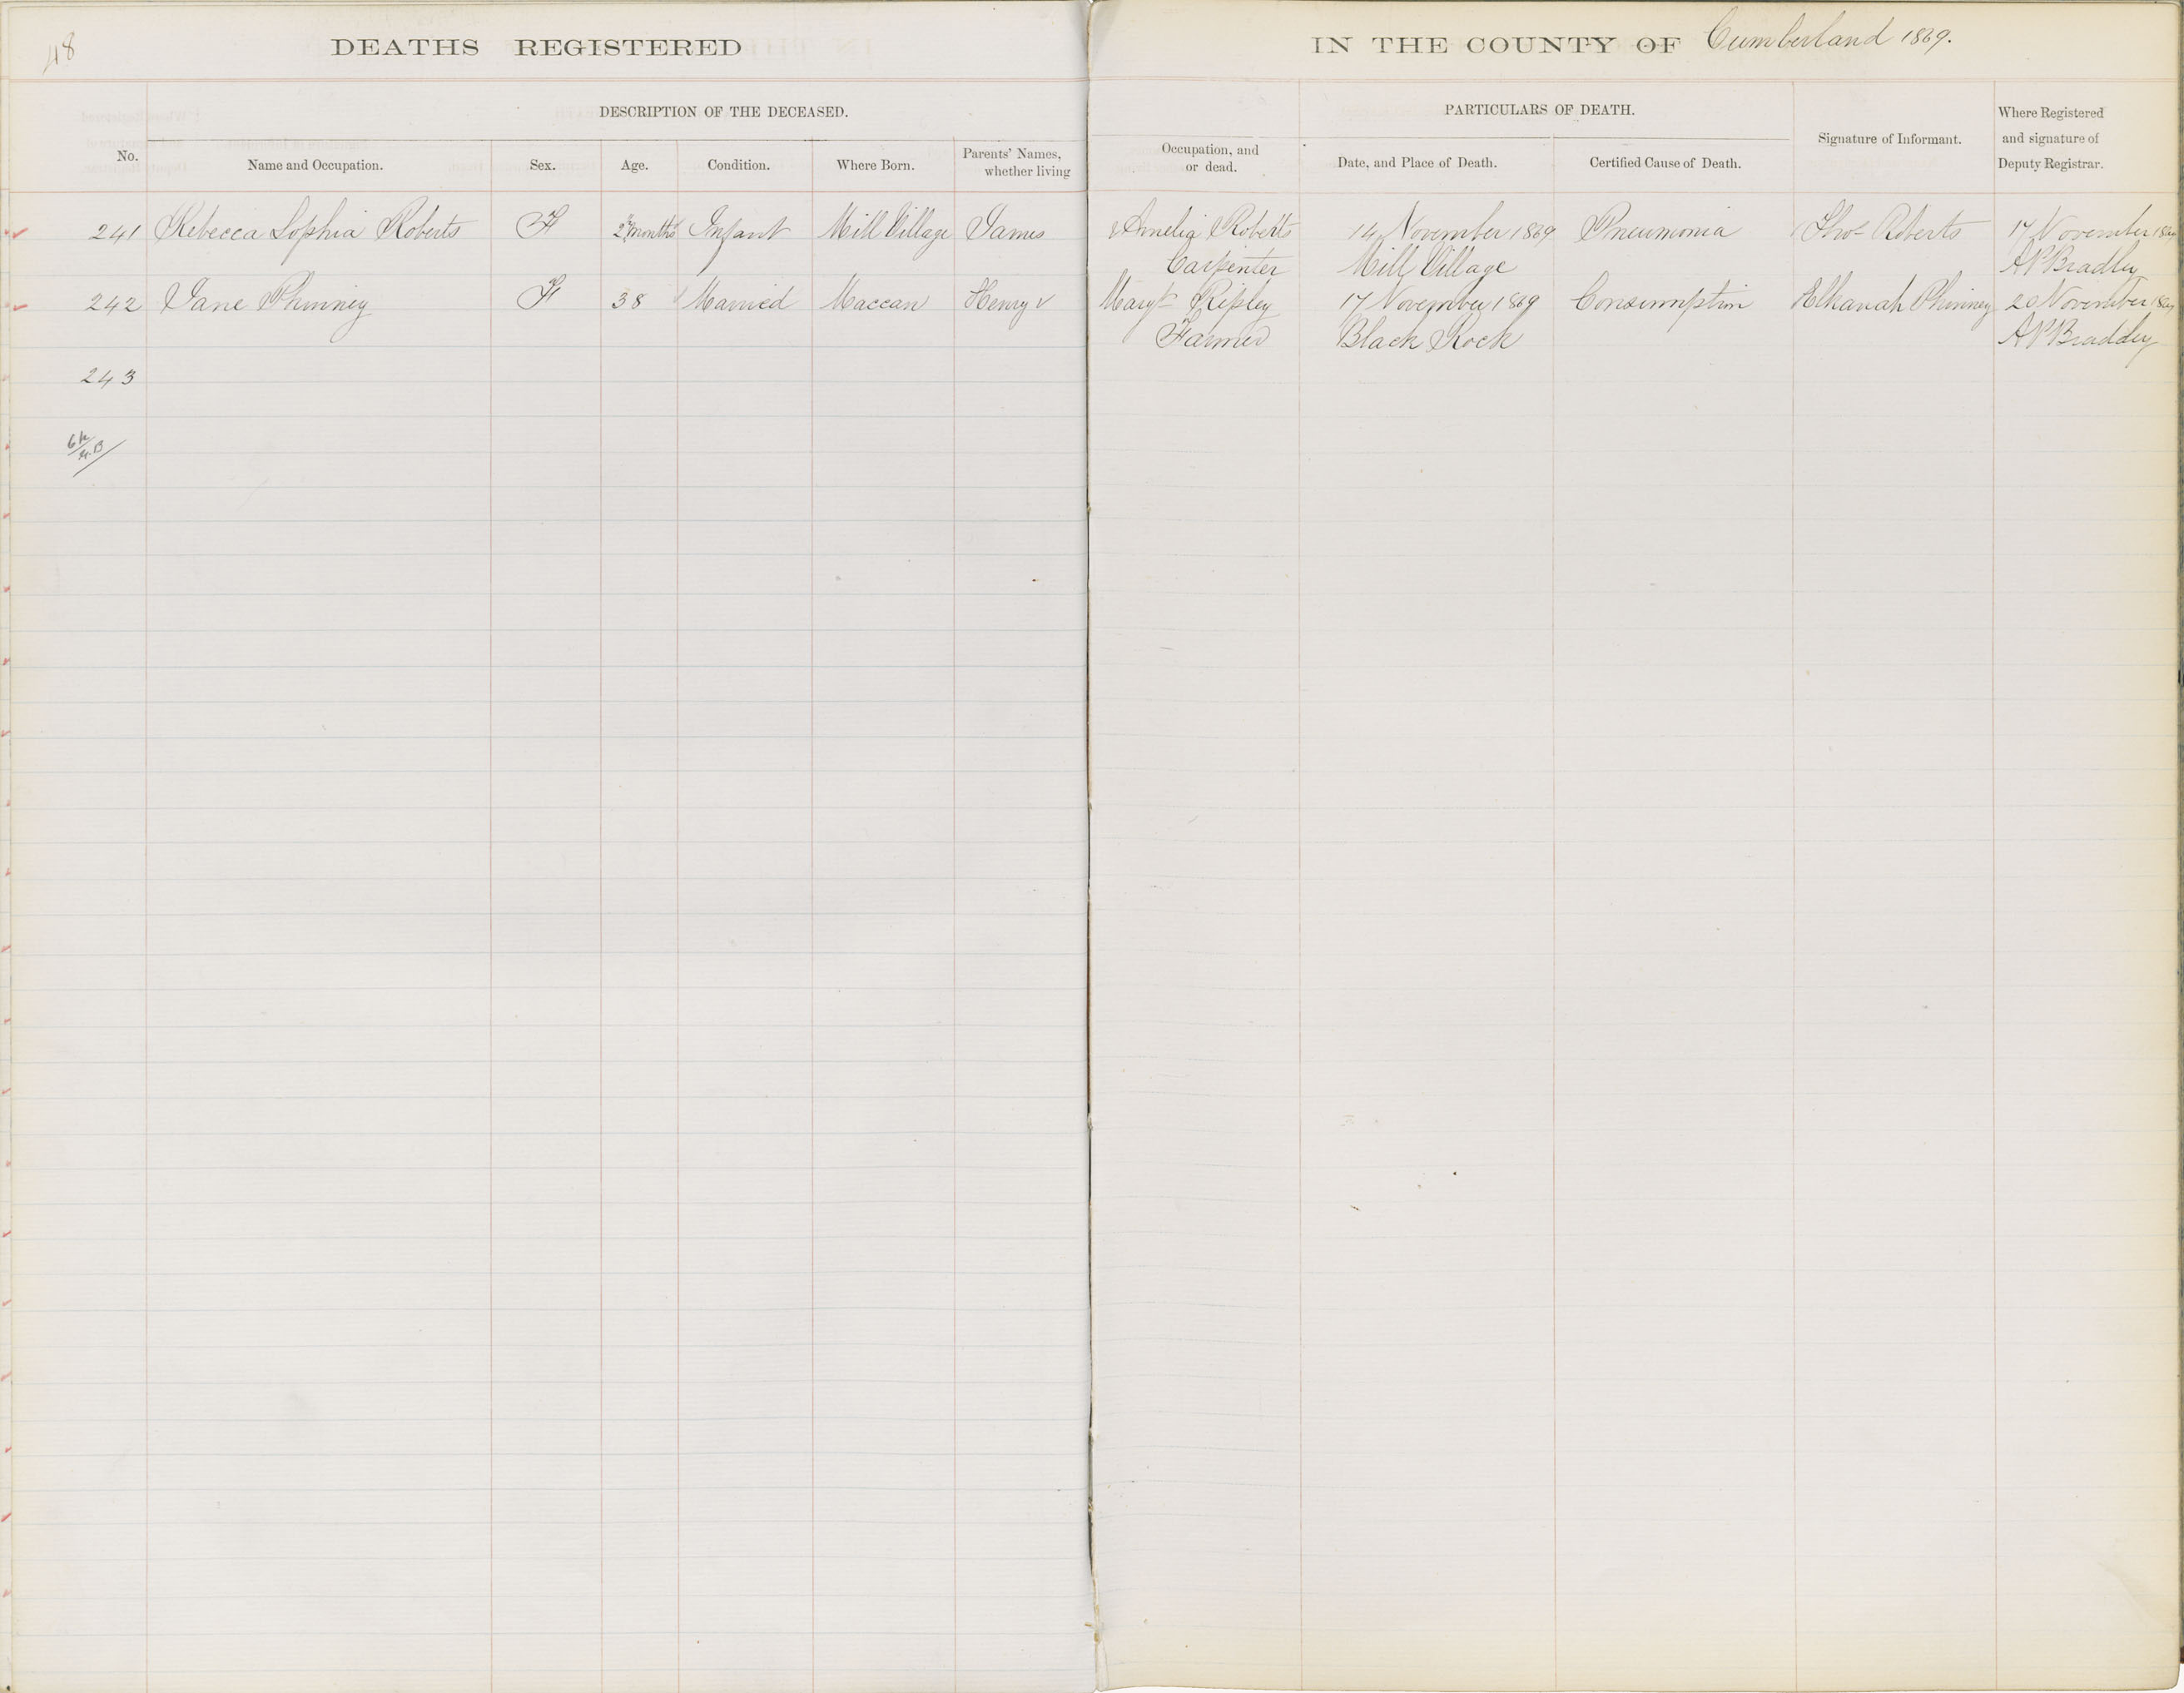 48
DEATHS REGISTERED IN THE COUNTY OF Cumberland 1869.
DESCRIPTION OF THE DECEASED. PARTICULARS OF DEATH.
No. Name and Occupation. Sex. Age. Condition. Where Born. Parents' Names, whether living Occupation, and or dead. Date, and Place of Death. Certified Cause of Death. Signature of Informant. Where Registered and signature of Deputy Registrar.
241 Rebecca Sophia Roberts F 2 months Infant Mill Village James & Amelia Roberts 14 November 1869 Pneumonia Thos Roberts 17 November 1869
Carpenter Mill Village A P Bradley
242 Jane Phinney F 38 Married Maccan Henry & Margt Ripley 17 November 1869 Consumption Elkanah Phinney 20 November 1869
Farmer Black Rock A P Bradley
243